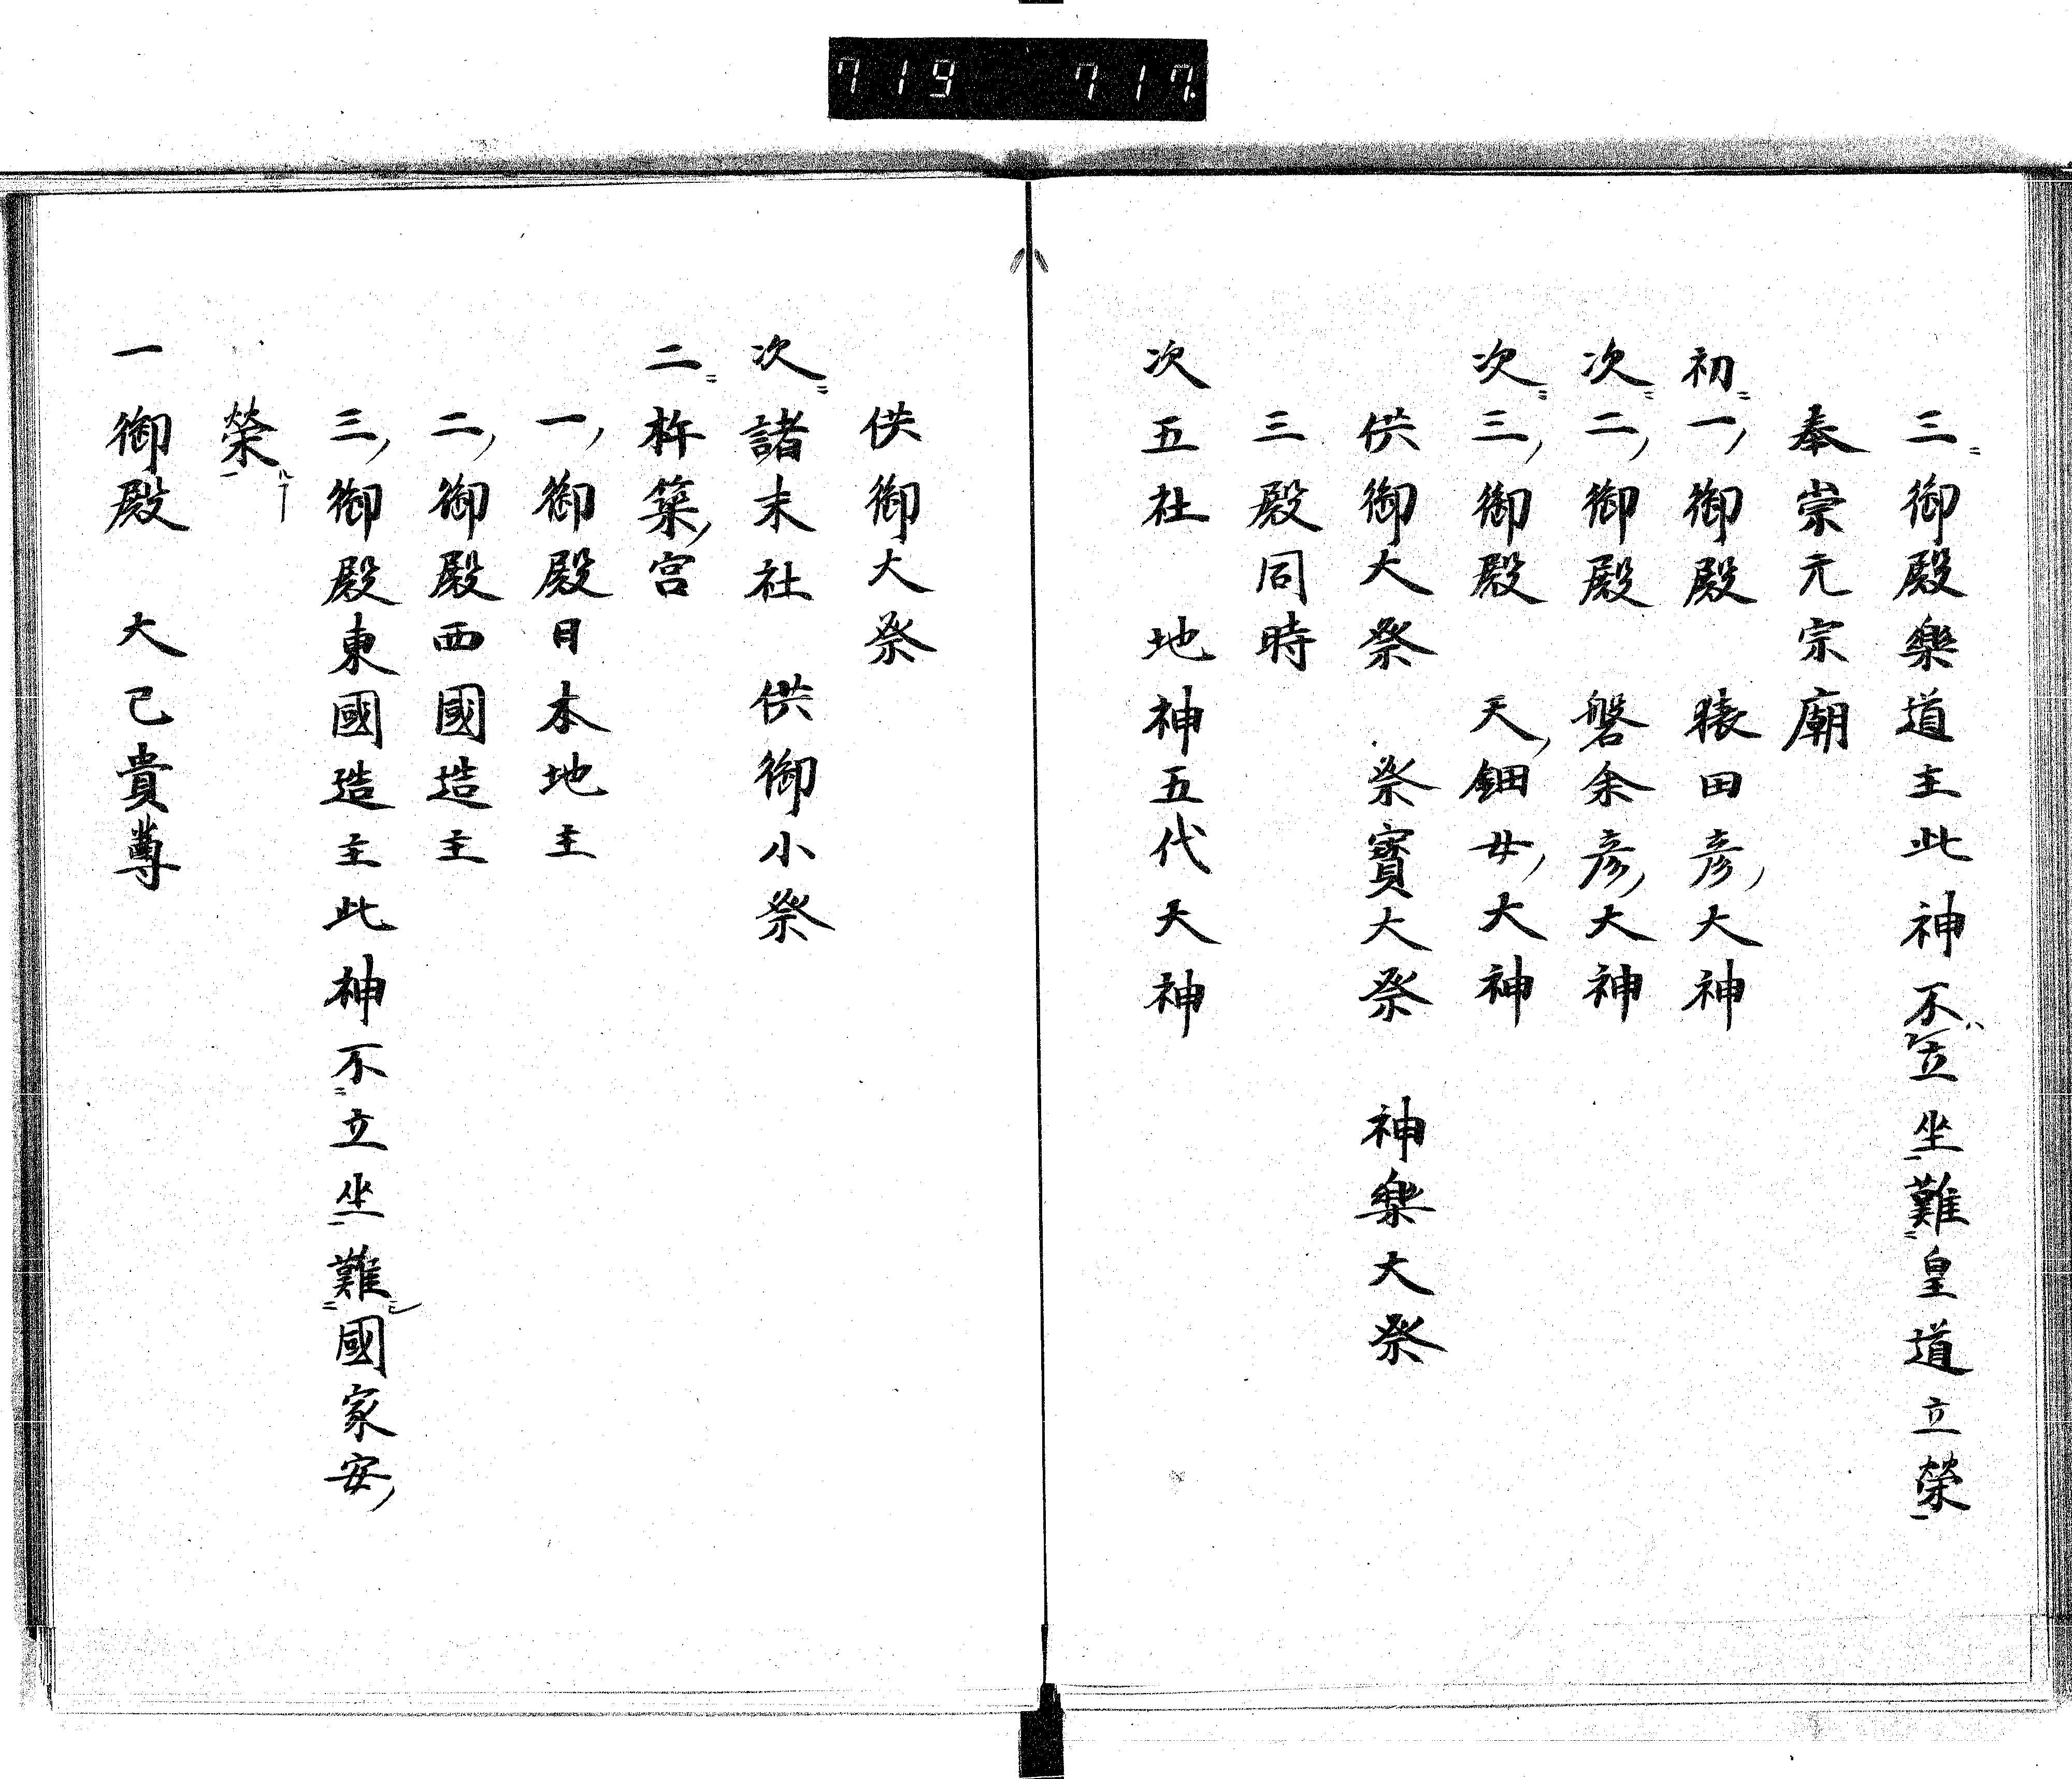 719 717
三ニ御殿樂道主此神不ハ立坐難皇道立榮
奉崇元宗廟
初ニ一ノ御殿 猿田彦ノ大神
次ニ二ノ御殿 磐余彦ノ大神
次ニ三ノ御殿 天ノ鈿女ノ大神
供御大祭 祭寶大祭 神樂大祭
三殿同時
次五社 地神五代天神
供御大祭
次ニ諸末社 供御小祭
二ニ杵築ノ宮
一ノ御殿日本地主
二ノ御殿西國造主
三ノ御殿東國造主此神不立坐難シ國家安ノ
榮
一御殿 大己貴尊